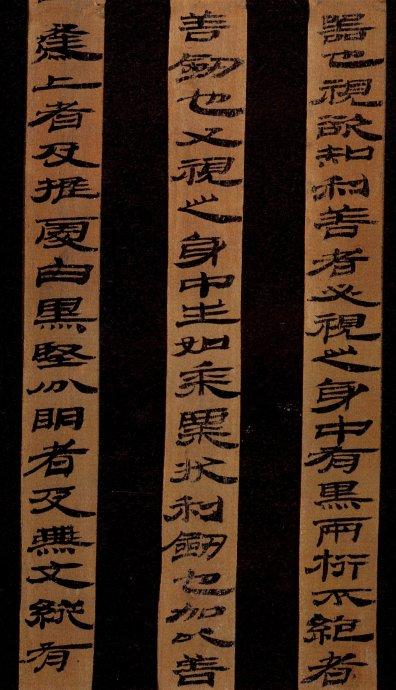 器也視欲知利善者必視之身中有黑兩桁不絕者
善劍也又視之身中生如黍粟狀利劍也加以善
上者及推處白黑堅分明者及無文縱有